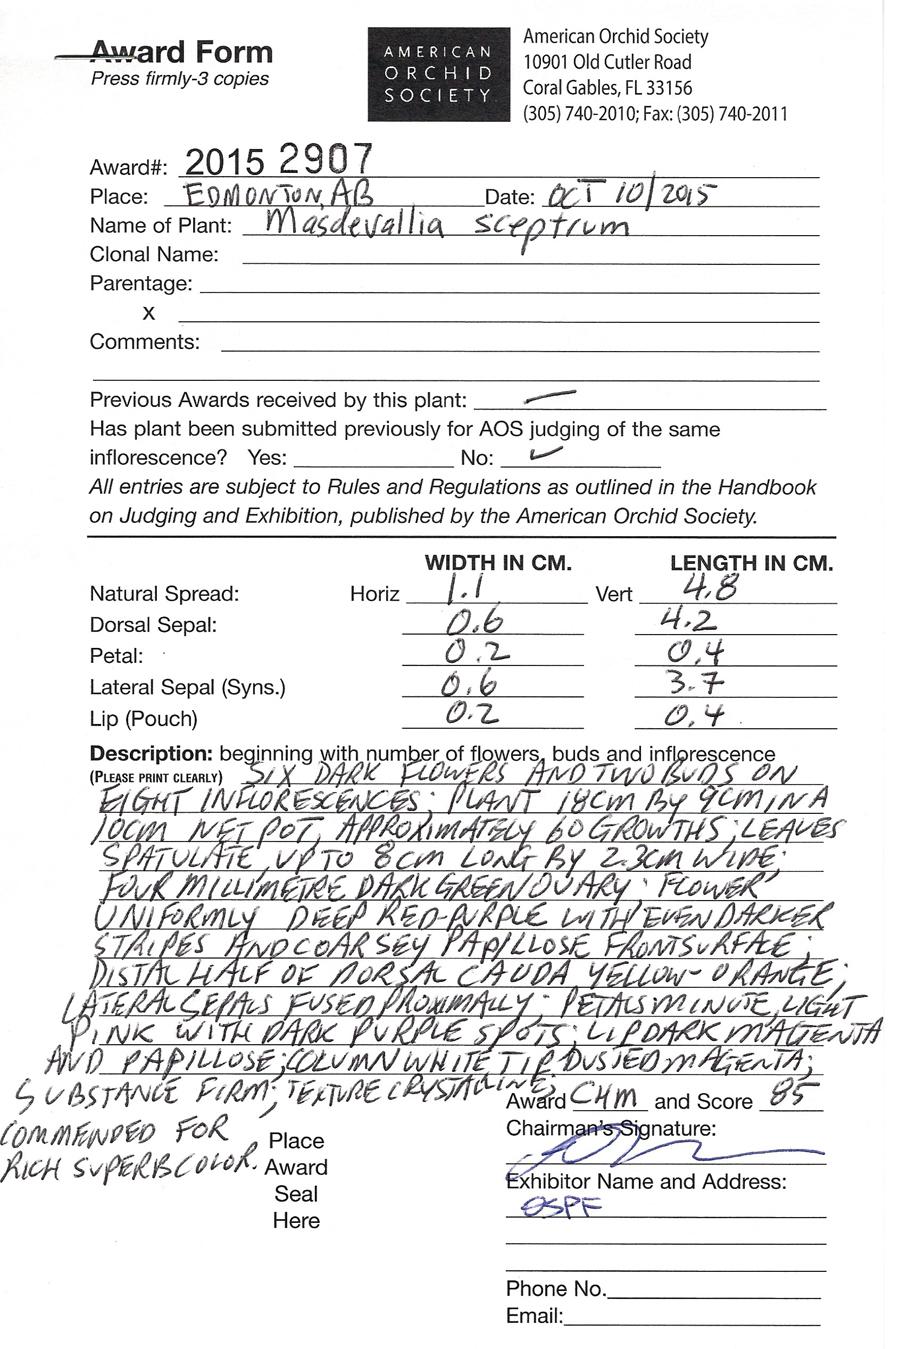 Award Form
Press firmly-3 copies
AMERICAN
ORCHID
SOCIETY
American Orchid Society
10901 Old Cutler Road
Coral Gables, FL 33156
(305) 740-2010; Fax: (305) 740-2011
Award#: 2015 2907
Place: EDMONTON, AB Date: OCT 10/2015
Name of Plant: Masdevallia sceptrum
Clonal Name:
Parentage:
X
Comments:
Previous Awards received by this plant: —
Has plant been submitted previously for AOS judging of the same
inflorescence? Yes: No: ✓
All entries are subject to Rules and Regulations as outlined in the Handbook
on Judging and Exhibition, published by the American Orchid Society.
WIDTH IN CM. LENGTH IN CM.
Natural Spread: Horiz 1.1 Vert 4.8
Dorsal Sepal: 0.6 4.2
Petal: 0.2 0.4
Lateral Sepal (Syns.) 0.6 3.7
Lip (Pouch) 0.2 0.4
Description: beginning with number of flowers, buds and inflorescence
(PLEASE PRINT CLEARLY) SIX DARK FLOWERS AND TWO BUDS ON
EIGHT INFLORESCENCES; PLANT 18CM BY 9CM IN A
10CM NET POT, APPROXIMATELY 60 GROWTHS; LEAVES
SPATULATE, UP TO 8CM LONG BY 2.3CM WIDE;
FOUR MILLIMETRE DARK GREEN OVARY; FLOWER
UNIFORMLY DEEP RED-PURPLE WITH EVEN DARKER
STRIPES AND COARSEY PAPILLOSE FRONT SURFACE;
DISTAL HALF OF DORSAL CAUDA YELLOW-ORANGE;
LATERAL SEPALS FUSED PROXIMALLY; PETALS MINUTE, LIGHT
PINK WITH DARK PURPLE SPOTS; LIP DARK MAGENTA
AND PAPILLOSE; COLUMN WHITE TIP DUSTED MAGENTA;
SUBSTANCE FIRM; TEXTURE CRYSTALLINE;
COMMENDED FOR
RICH SUPERB COLOR.
Place
Award
Seal
Here
Award CHM and Score 85
Chairman's Signature:
Exhibitor Name and Address:
OSPF
Phone No.
Email: